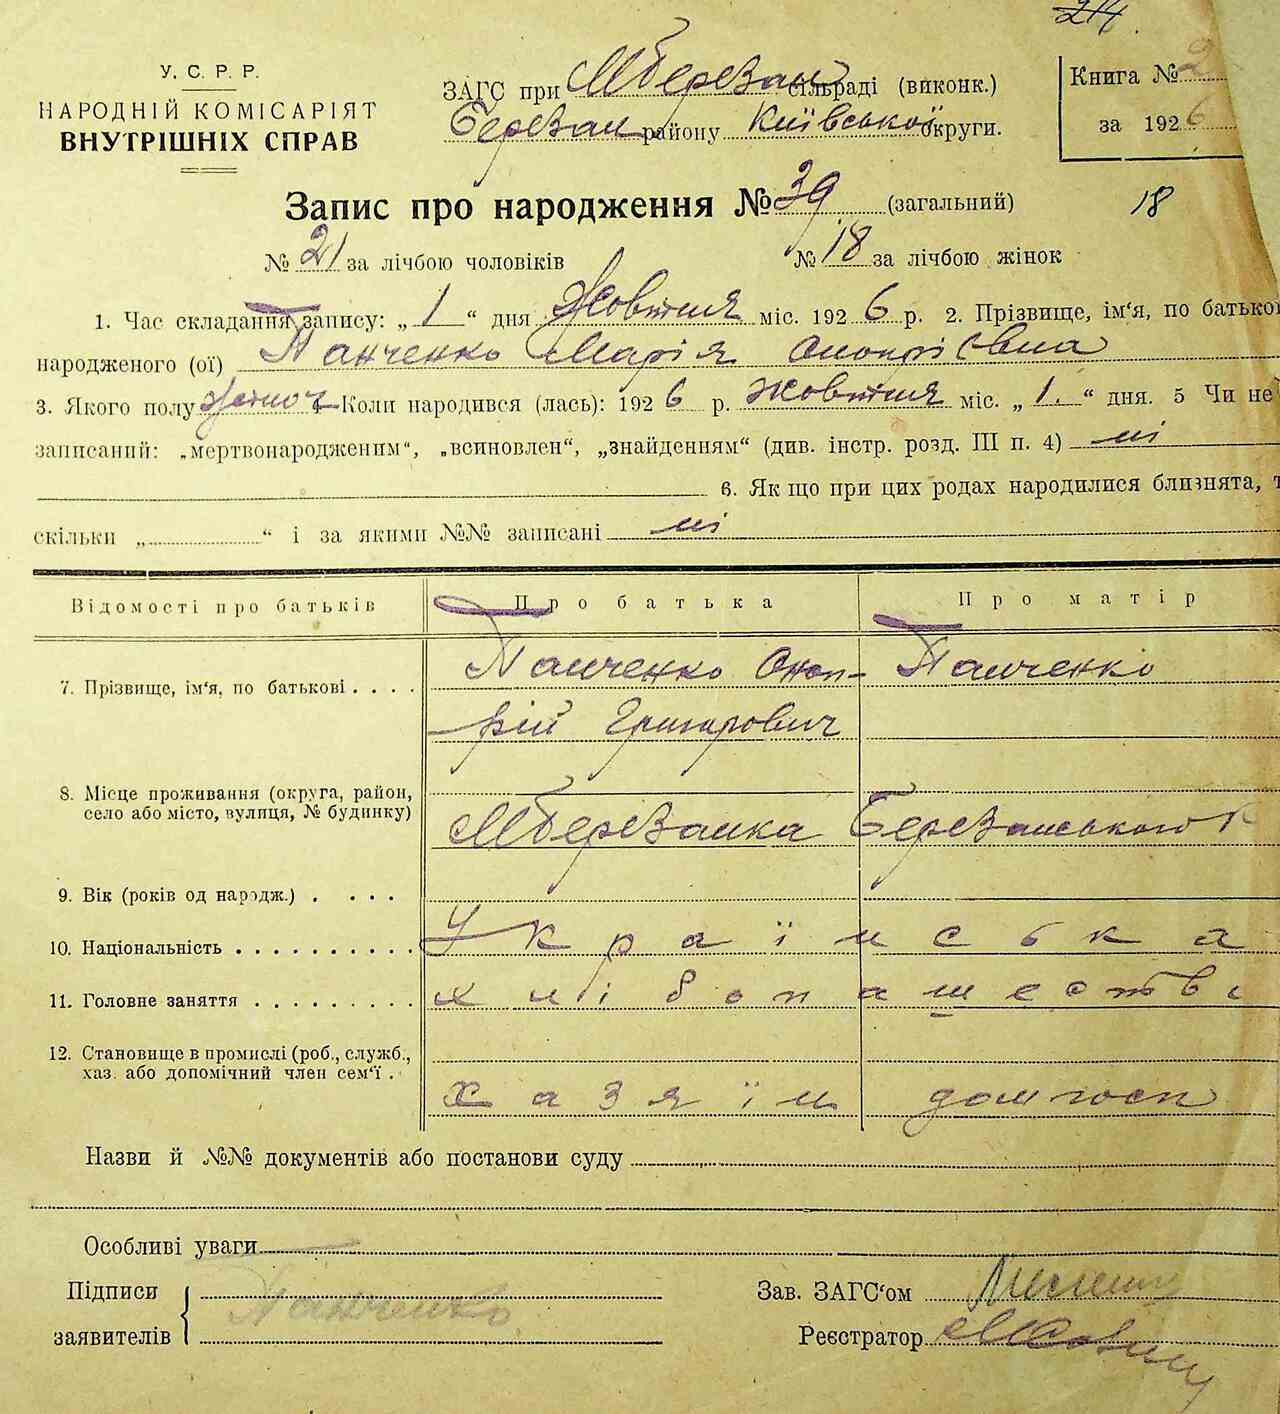 214.
У. С. Р. Р.
НАРОДНІЙ КОМІСАРІЯТ
ВНУТРІШНІХ СПРАВ
ЗАГС при МБерезан сільраді (виконк.)
Березан району Київської округи.
Книга № 2
за 1926
Запис про народження № 39 (загальний)
18
№ 21 за лічбою чоловіків № 18 за лічбою жінок
1. Час складання запису: „ 1 “ дня Жовтня міс. 1926 р. 2. Прізвище, ім‘я, по батькові
народженого (ої) Панченко Марія Онопріївна
3. Якого полу жіноч 4 Коли народився (лась): 1926 р. жовтня міс. „ 1. “ дня. 5 Чи не
записаний: „мертвонародженим“, „всиновлен“, „знайденням“ (див. інстр. розд. III п. 4) ні
6. Як що при цих родах народилися близнята, т
скільки „ “ і за якими №№ записані ні
Відомості про батьків Про батька Про матір
7. Прізвище, ім‘я, по батькові . . . . Панченко Оноп- Панченко
рій Григорович
8. Місце проживання (округа, район,
село або місто, вулиця, № будинку) МБерезанка Березанського Р
9. Вік (років од народж.) . . . .
10. Національність . . . . . . . . . . Українська
11. Головне заняття . . . . . . . . . хлібопашество
12. Становище в промислі (роб., служб.,
хаз. або допомічний член сем‘ї . хазяїн домгосп
Назви й №№ документів або постанови суду
Особливі уваги
Підписи
заявителів Панченко
Зав. ЗАГС‘ом
Реєстратор